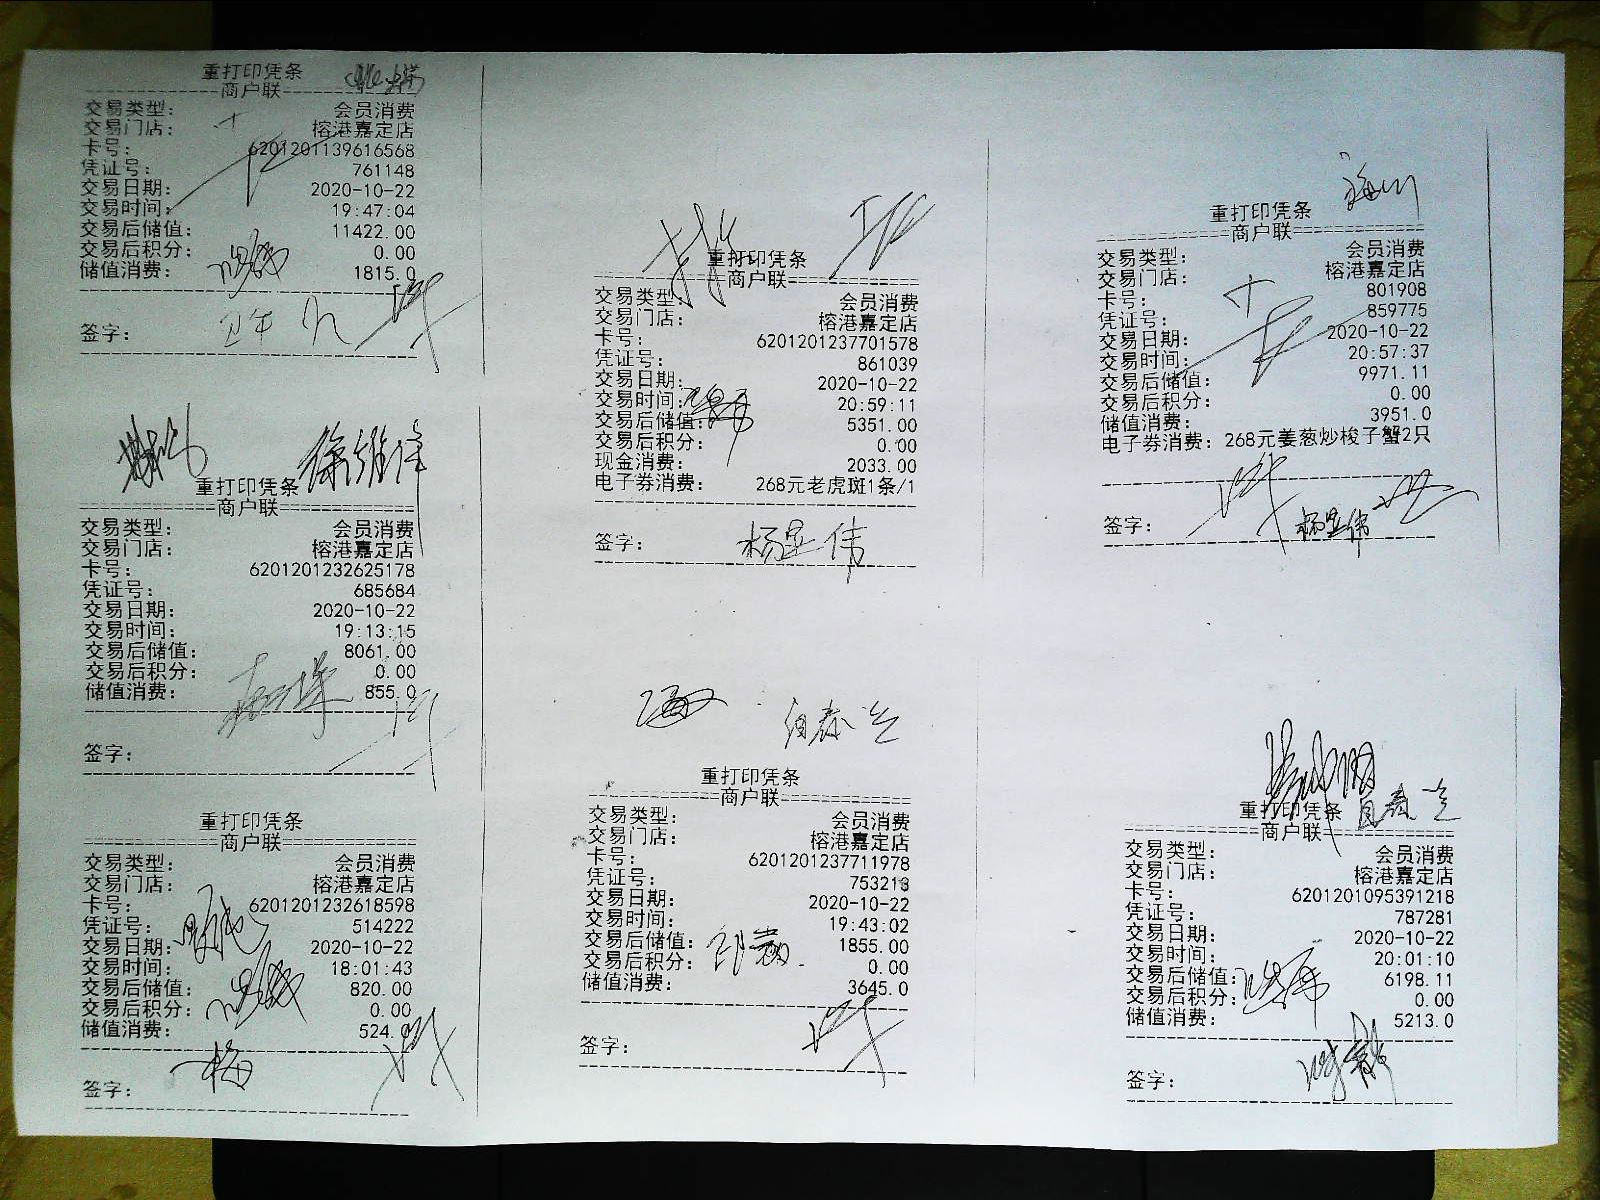 重打印凭条
商户联
交易类型: 会员消费
交易门店: 榕港嘉定店
卡号: 6201201139616568
凭证号: 761148
交易日期: 2020-10-22
交易时间: 19:47:04
交易后储值: 11422.00
交易后积分: 0.00
储值消费: 1815.0
签字:
徐维泽
重打印凭条
商户联
交易类型: 会员消费
交易门店: 榕港嘉定店
卡号: 6201201232625178
凭证号: 685684
交易日期: 2020-10-22
交易时间: 19:13:15
交易后储值: 8061.00
交易后积分: 0.00
储值消费: 855.0
签字:
重打印凭条
商户联
交易类型: 会员消费
交易门店: 榕港嘉定店
卡号: 6201201232618598
凭证号: 514222
交易日期: 2020-10-22
交易时间: 18:01:43
交易后储值: 820.00
交易后积分: 0.00
储值消费: 524.0
签字:
重打印凭条
商户联
交易类型: 会员消费
交易门店: 榕港嘉定店
卡号: 6201201237701578
凭证号: 861039
交易日期: 2020-10-22
交易时间: 20:59:11
交易后储值: 5351.00
交易后积分: 0.00
现金消费: 2033.00
电子券消费: 268元老虎斑1条/1
签字: 杨显伟
重打印凭条
商户联
交易类型: 会员消费
交易门店: 榕港嘉定店
卡号: 6201201237711978
凭证号: 753213
交易日期: 2020-10-22
交易时间: 19:43:02
交易后储值: 1855.00
交易后积分: 0.00
储值消费: 3645.0
签字:
重打印凭条
商户联
交易类型: 会员消费
交易门店: 榕港嘉定店
卡号: 801908
凭证号: 859775
交易日期: 2020-10-22
交易时间: 20:57:37
交易后储值: 9971.11
交易后积分: 0.00
储值消费: 3951.0
电子券消费: 268元姜葱炒梭子蟹2只
签字: 杨显伟
重打印凭条
商户联
交易类型: 会员消费
交易门店: 榕港嘉定店
卡号: 6201201095391218
凭证号: 787281
交易日期: 2020-10-22
交易时间: 20:01:10
交易后储值: 6198.11
交易后积分: 0.00
储值消费: 5213.0
签字: